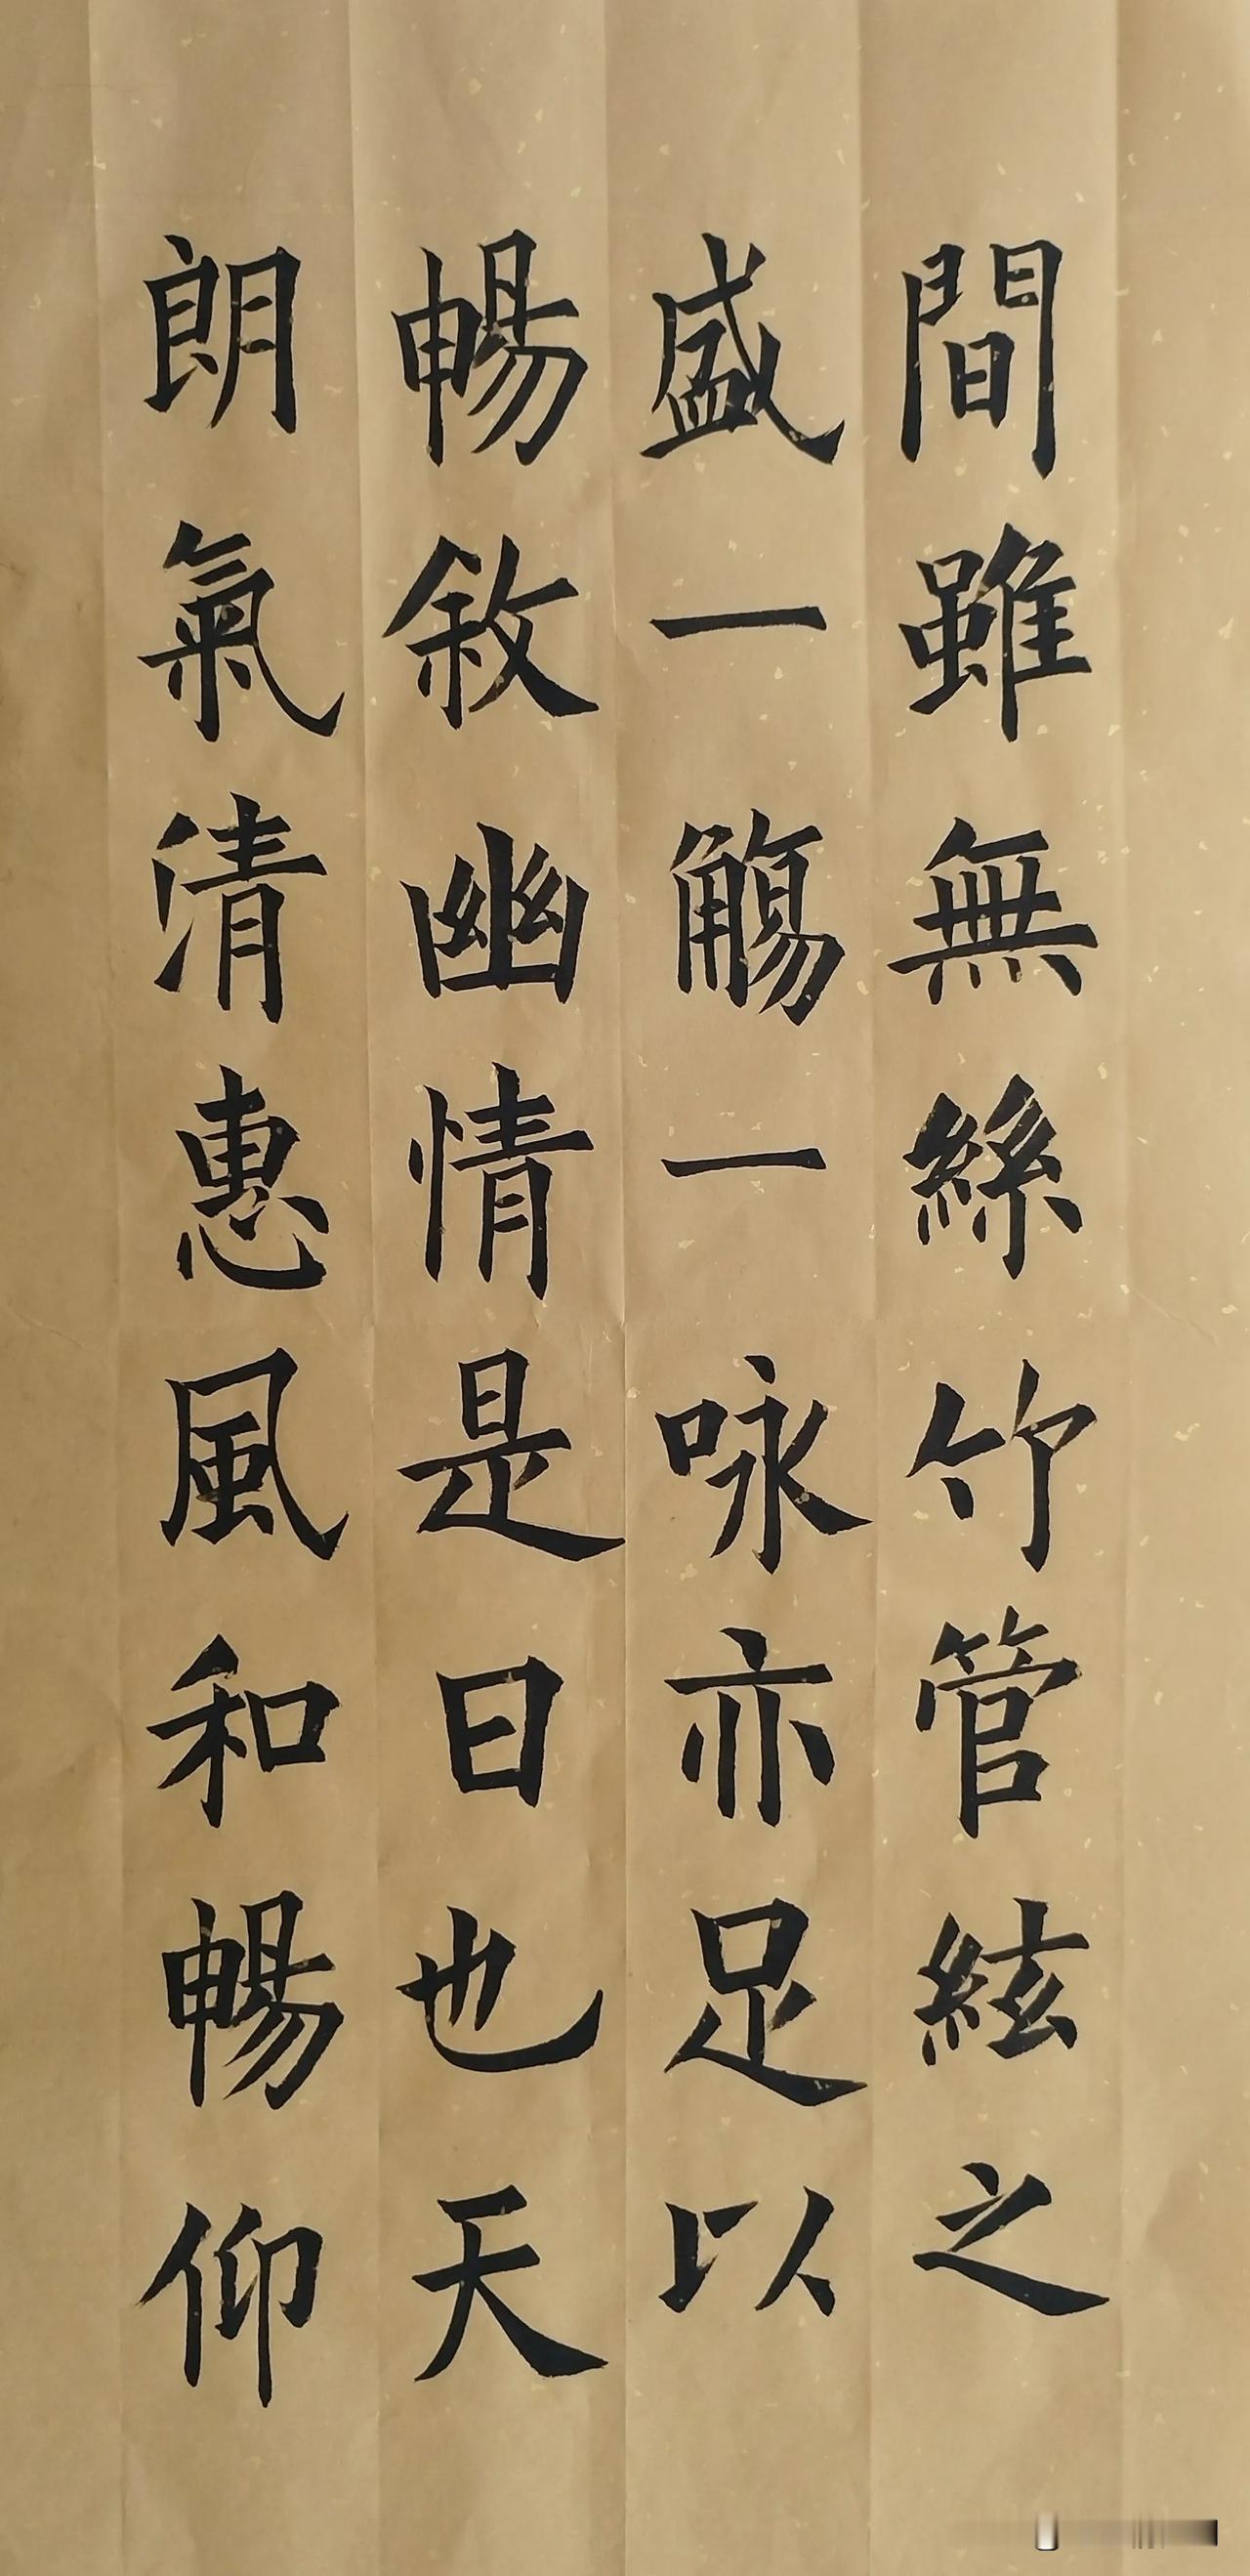 間雖無絲竹管絃之
盛一觴一咏亦足以
暢敘幽情是日也天
朗氣清惠風和暢仰